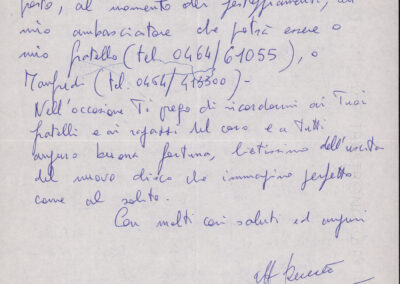 posto, al momento dei festeggiamenti, un
mio ambasciatore che potrà essere o
mio fratello (tel. 0464/61055), o
Manfredi (tel. 0464/413300) -
Nell'occasione Ti prego di ricordarmi ai Tuoi
fratelli e ai ragazzi del coro e a tutti
auguro buona fortuna, lietissimo dell'uscita
del nuovo disco che immagino perfetto
come al solito.
Con molti cari saluti ed auguri
aff.